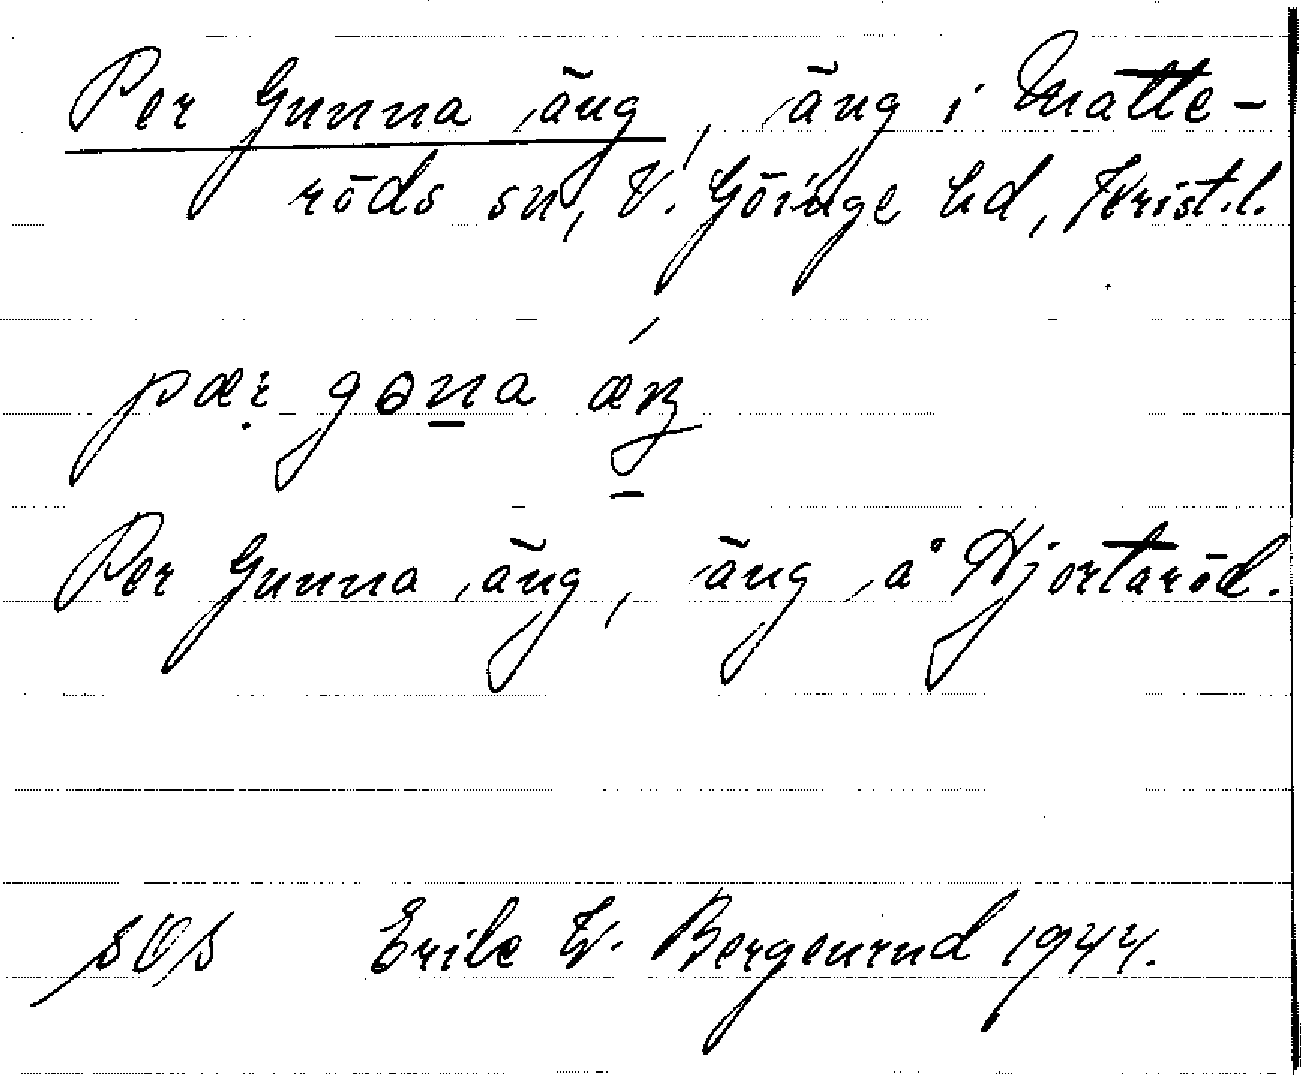 Per Gunna äng, äng i Matte-
röds sn, V. Göinge hd, Krist.l.
pær gɵna æŋ
Per Gunna äng, äng å Hjortaröd.
SOS Erik W. Bergenrud 1944.